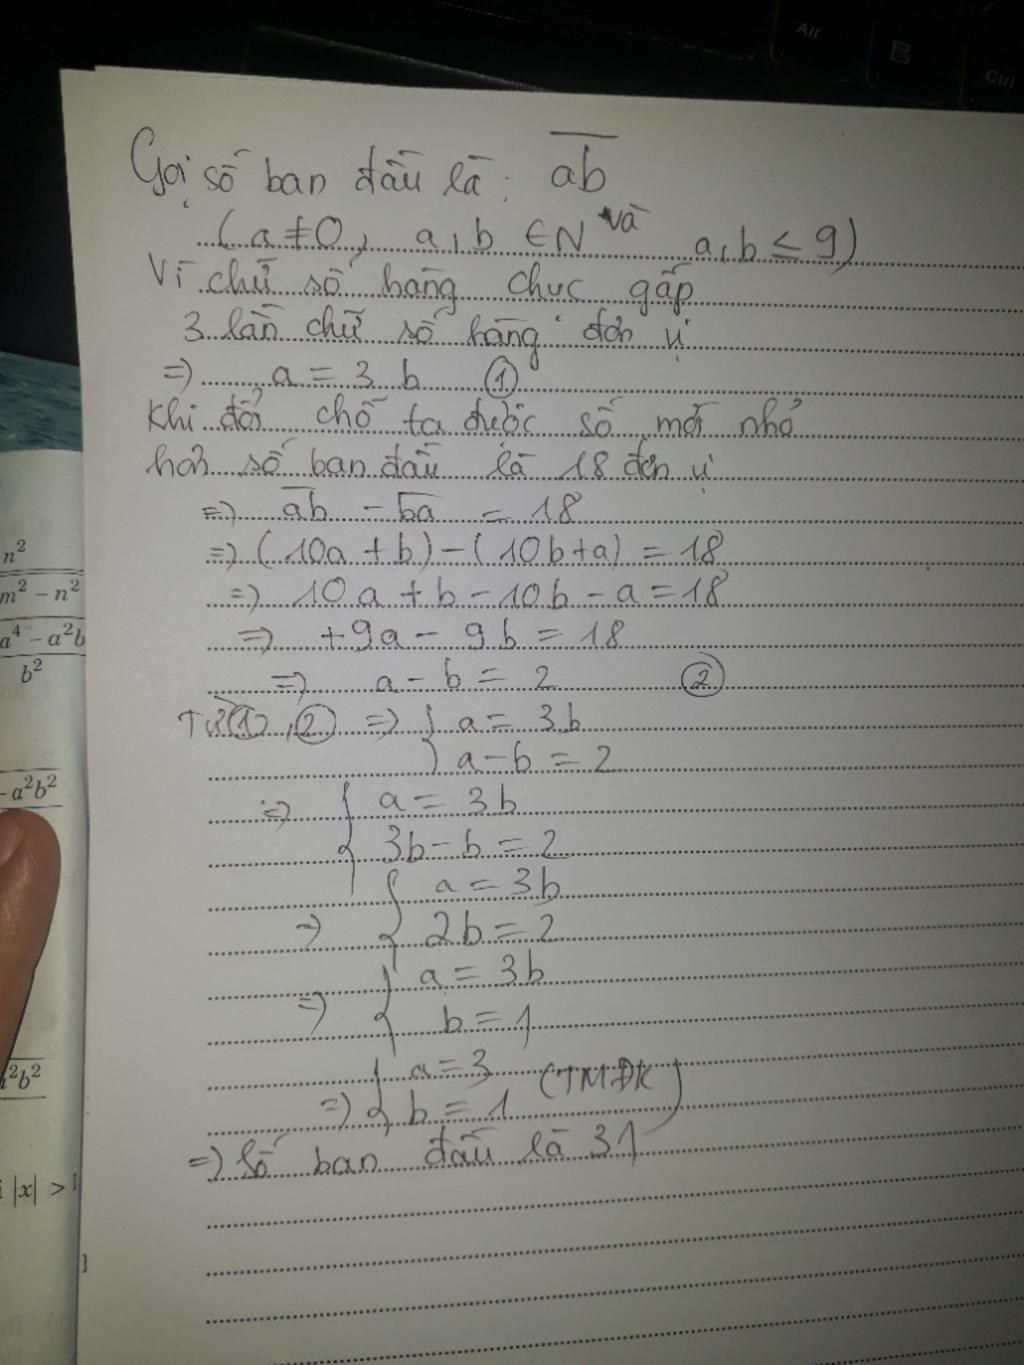 Alt
Ctrl
Gọi số ban đầu là: ab
(a ≠ 0, a, b ∈ N và a, b ≤ 9)
Vì chữ số hàng chục gấp
3 lần chữ số hàng đơn vị
=> a = 3 b ①
Khi đổi chỗ ta được số mới nhỏ
hơn số ban đầu là 18 đơn vị
=> ab - ba = 18
=> (10a + b) - (10b + a) = 18
=> 10a + b - 10b - a = 18
=> +9a - 9b = 18
=> a - b = 2 ②
Từ ①, ② => { a = 3b
a - b = 2
=> { a = 3b
3b - b = 2
=> { a = 3b
2b = 2
=> { a = 3b
b = 1
=> { a = 3
b = 1 (TMĐK)
=> Số ban đầu là 31
n²
m² − n²
a⁴ − a²b
b²
−a²b²
²b²
|x| >